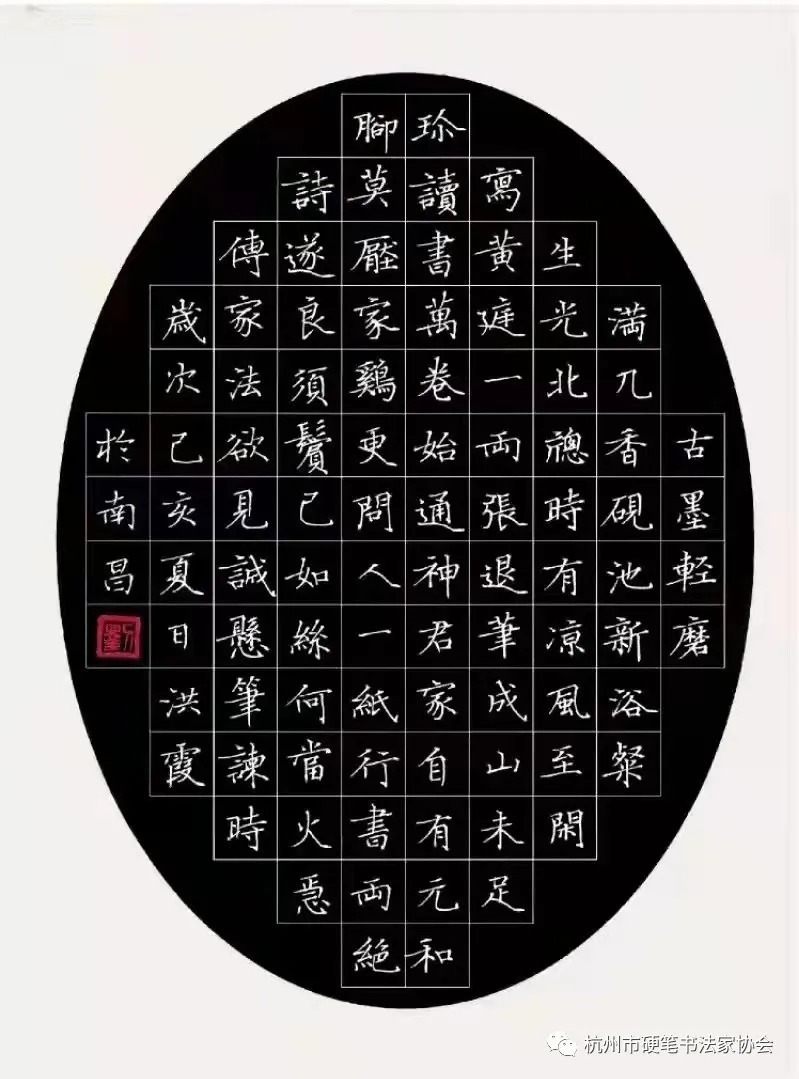 古墨軽磨
満几香硯池新浴粲
生光北牕時有凉風至閑
寫黄庭一両張退筆成山未足
珎讀書萬卷始通神君家自有元和
腳莫厭家鷄更問人一紙行書両絶
詩遂良須鬢已如絲何當火急
傳家法欲見誠懸筆諫時
歲次己亥夏日洪霞
於南昌
杭州市硬笔书法家协会